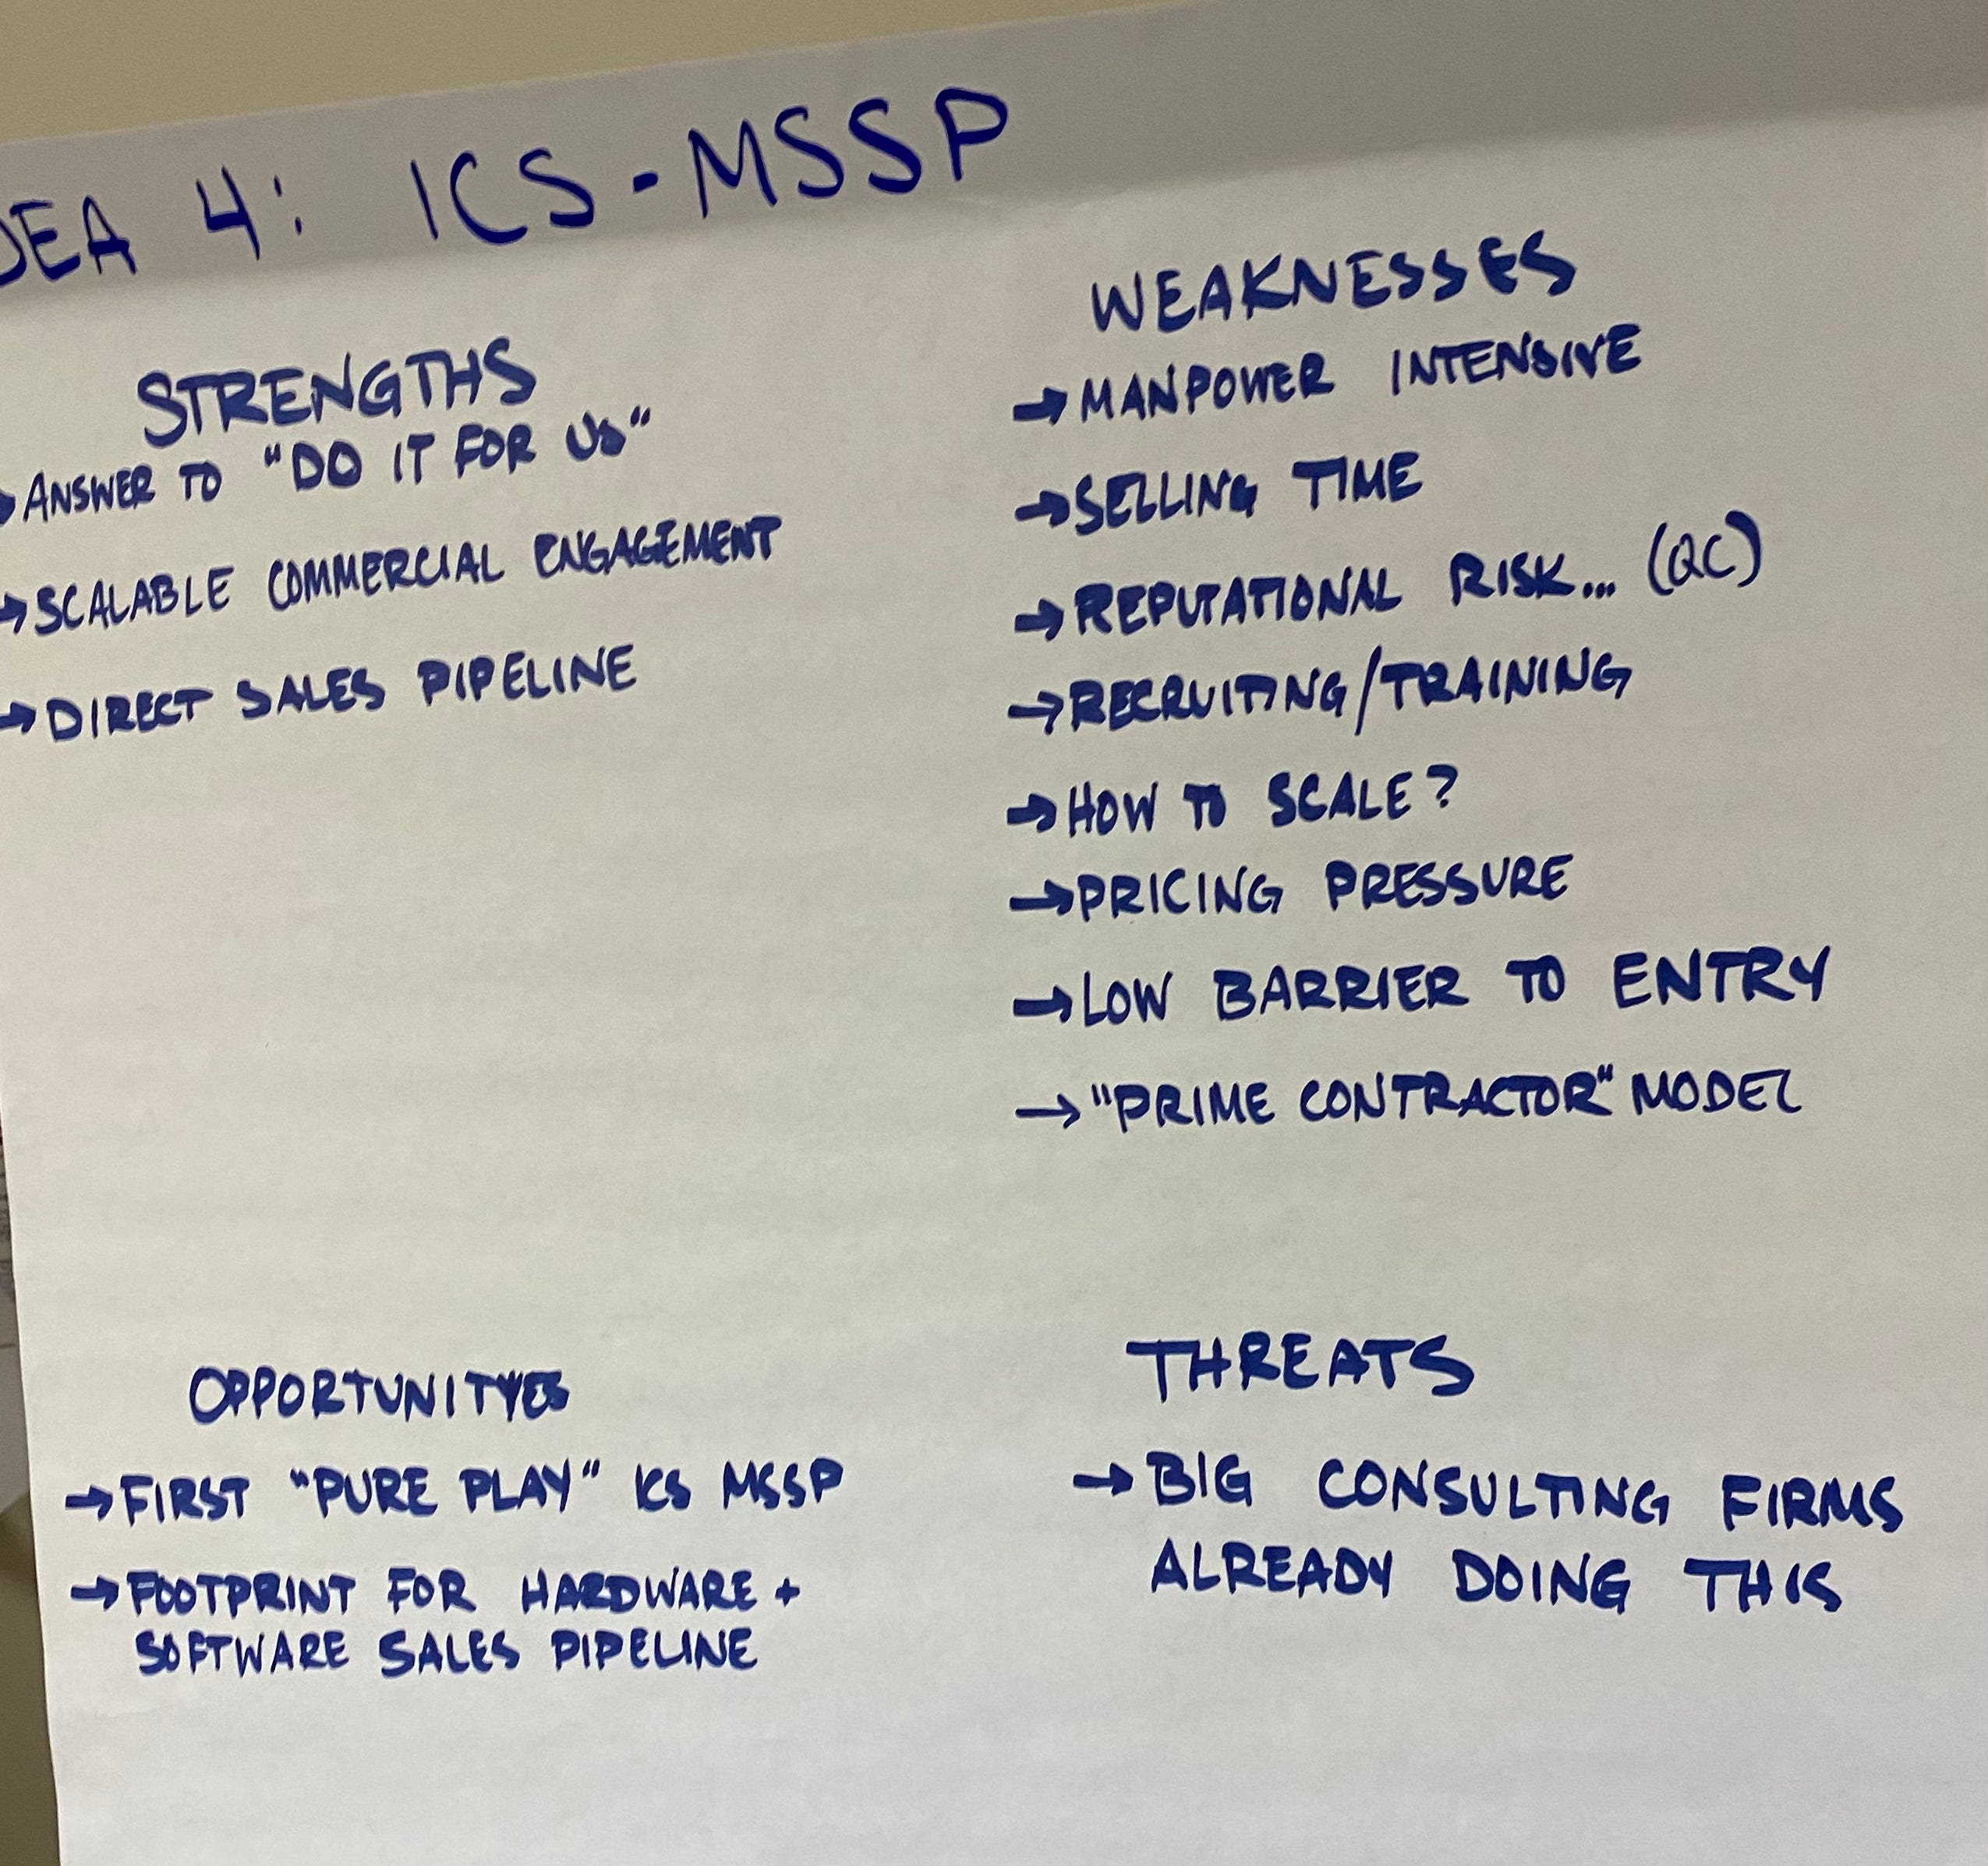 DEA 4: ICS-MSSP
STRENGTHS
→ ANSWER TO "DO IT FOR US"
→ SCALABLE COMMERCIAL ENGAGEMENT
→ DIRECT SALES PIPELINE
WEAKNESSES
→ MANPOWER INTENSIVE
→ SELLING TIME
→ REPUTATIONAL RISK... (QC)
→ RECRUITING/TRAINING
→ HOW TO SCALE?
→ PRICING PRESSURE
→ LOW BARRIER TO ENTRY
→ "PRIME CONTRACTOR" MODEL
OPPORTUNITYES
→ FIRST "PURE PLAY" ICS MSSP
→ FOOTPRINT FOR HARDWARE +
SOFTWARE SALES PIPELINE
THREATS
→ BIG CONSULTING FIRMS
ALREADY DOING THIS